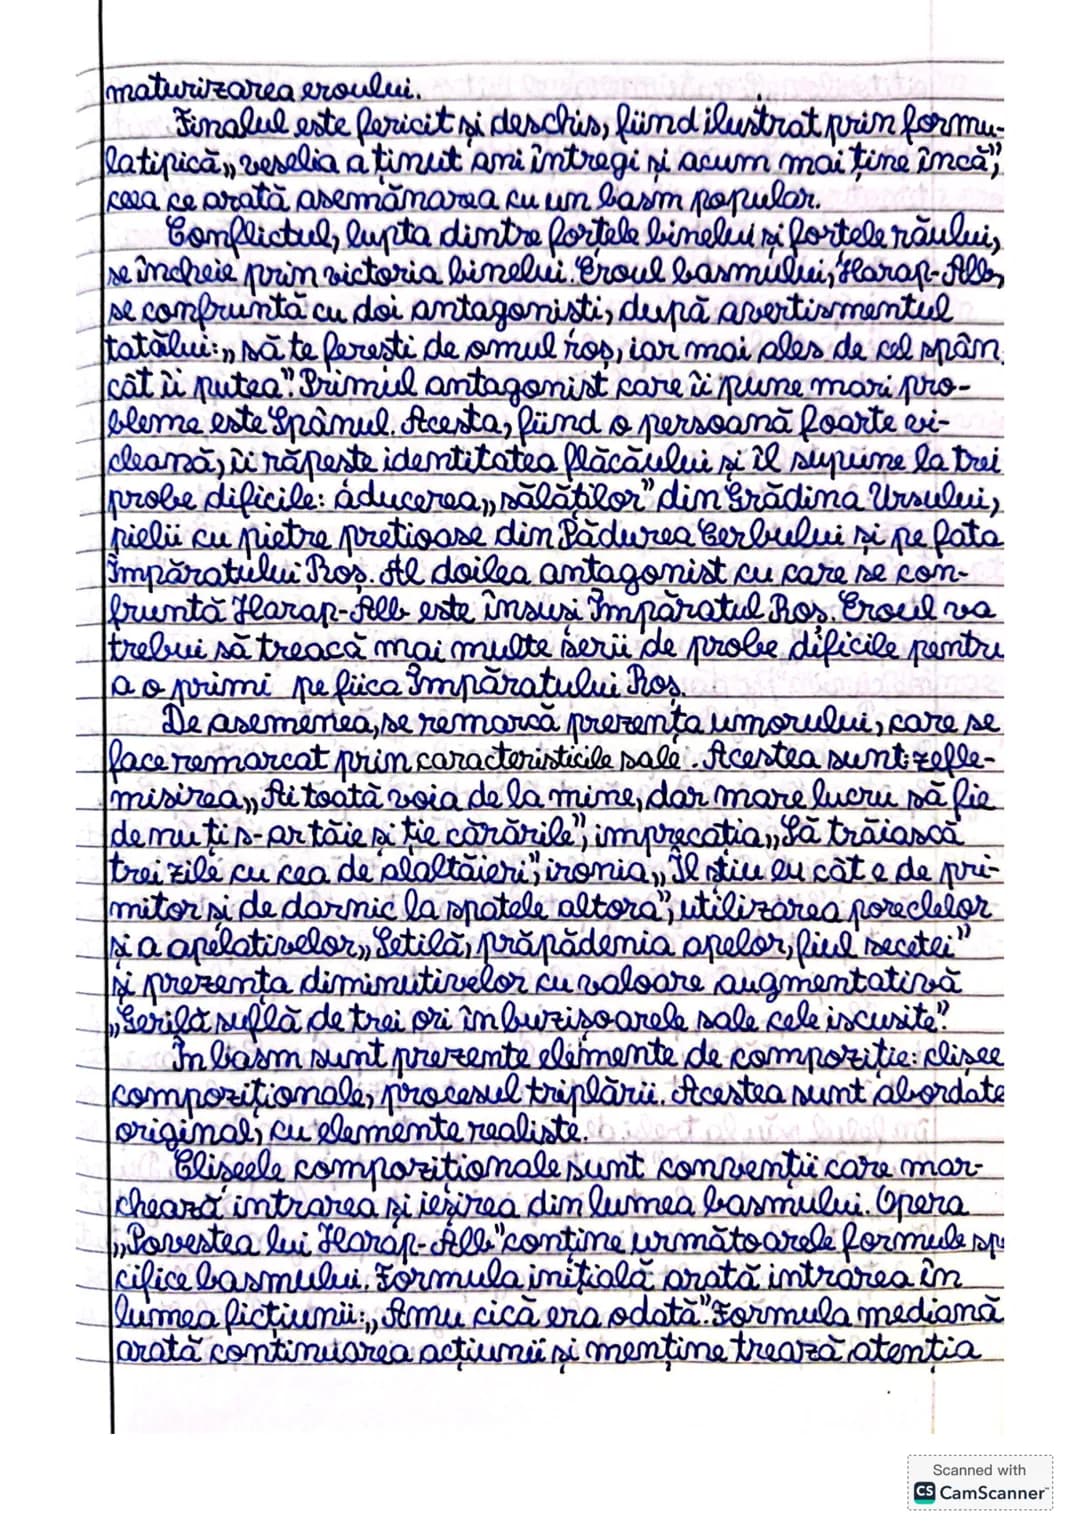 maturizarea eroului.
Finalul este fericit și deschis, fiind ilustrat prin formu-
la tipică „veselia a ținut ani întregi și acum mai ține încă",
ceea ce arată asemănarea cu un basm popular.
Conflictul, lupta dintre forțele binelui și forțele răului,
se încheie prin victoria binelui. Eroul basmului, Harap-Alb,
se confruntă cu doi antagoniști, după avertismentul
tatălui: „să te ferești de omul roș, iar mai ales de cel spân,
cât îi putea". Primul antagonist care îi pune mari pro-
bleme este Spânul. Acesta, fiind o persoană foarte vi-
cleană, îi răpește identitatea flăcăului și îl supune la trei
probe dificile: aducerea „sălăților" din Grădina Ursului,
pielii cu pietre prețioase din Pădurea Cerbului și pe fata
Împăratului Roș. Al doilea antagonist cu care se con-
fruntă Harap-Alb este însuși Împăratul Roș. Eroul va
trebui să treacă mai multe serii de probe dificile pentru
a o primi pe fiica Împăratului Roș.
De asemenea, se remarcă prezența umorului, care se
face remarcat prin caracteristicile sale. Acestea sunt: zefle-
misirea „Ai toată voia de la mine, dar mare lucru să fie
de nu ți s-ar tăie și ție cărările", imprecația „Să trăiască
trei zile cu cea de alaltăieri", ironia „Îl știu eu cât e de pri-
mitor și de darnic la spatele altora", utilizarea poreclelor
și a apelativelor „Setilă, prăpădenia apelor, fiul secetei"
și prezența diminutivelor cu valoare augmentativă
„Gerilă suflă de trei ori în buzișoarele sale cele iscusite".
În basm sunt prezente elemente de compoziție: clișee
compoziționale, procesul triplării. Acestea sunt abordate
original, cu elemente realiste.
Clișeele compoziționale sunt convenții care mar-
chează intrarea și ieșirea din lumea basmului. Opera
„Povestea lui Harap-Alb" conține următoarele formule spe
cifice basmului. Formula inițială arată intrarea în
lumea ficțiunii: „Amu cică era odată". Formula mediană
arată continuarea acțiunii și menține trează atenția
Scanned with
CS CamScanner